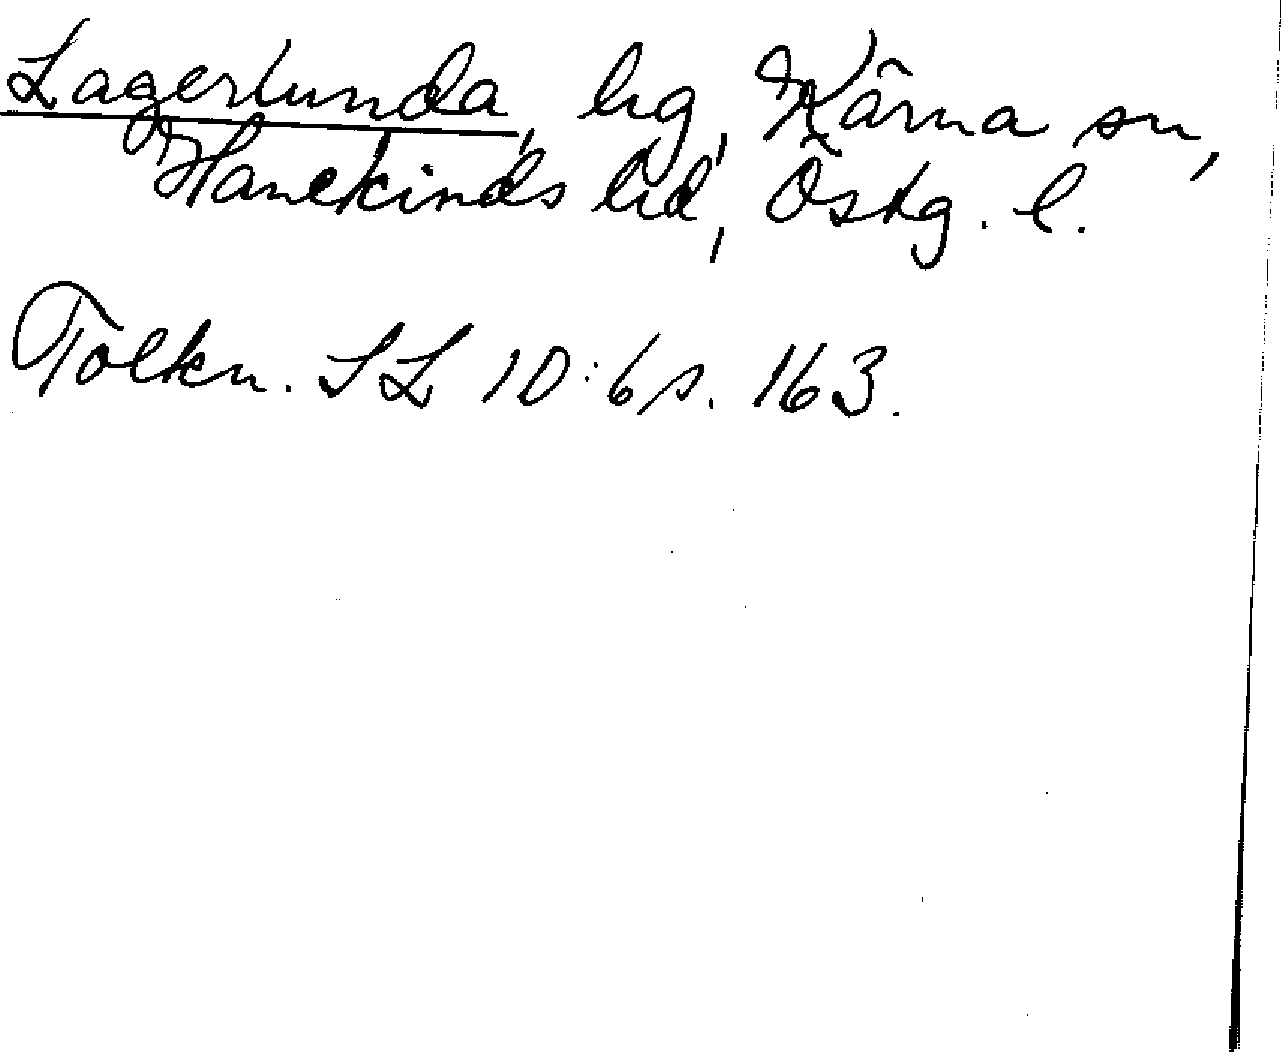 Lagerlunda, hg, Kärna sn,
Hanekinds hd, Östg. l.
Tolkn. SL 10:6 s. 163.